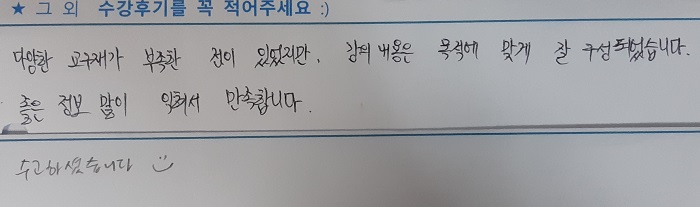 ★ 그 외 수강후기를 꼭 적어주세요 :)
다양한 교구재가 부족한 점이 있었지만, 강의 내용은 목적에 맞게 잘 구성되었습니다.
좋은 정보 많이 익혀서 만족합니다.
수고하셨습니다 :)